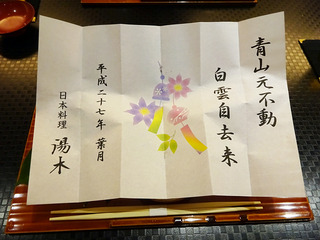 青山元不動
白雲自去来
平成二十七年 葉月
日本料理 湯木